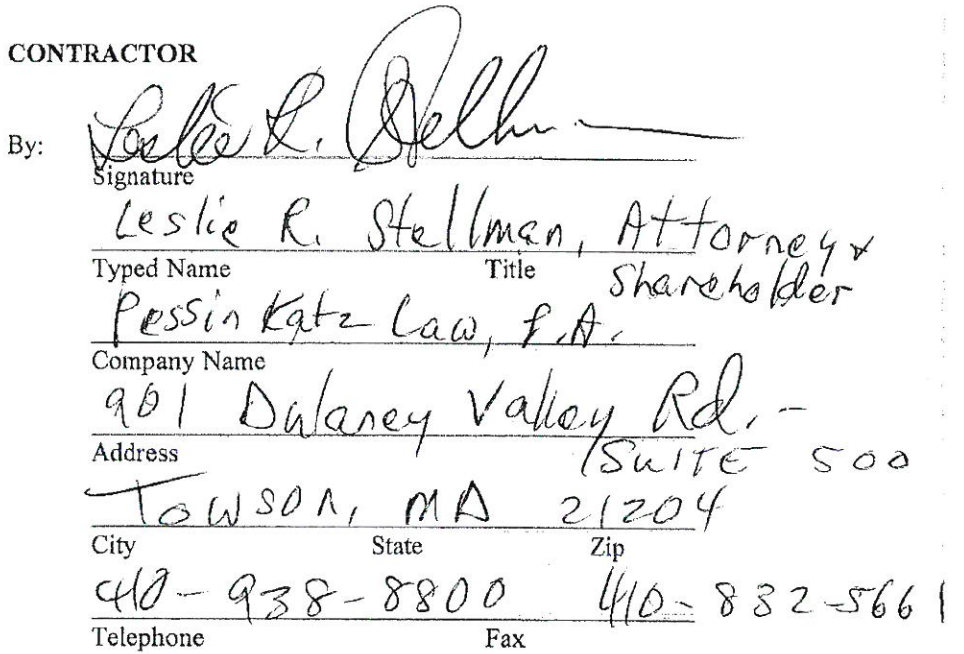 CONTRACTOR
By: Leslie R. Stellman
Signature
Leslie R. Stellman, Attorney &
Shareholder
Typed Name Title
Pessin Katz Law, P.A.
Company Name
901 Dulaney Valley Rd. -
Suite 500
Address
Towson, MD 21204
City State Zip
410-938-8800 410-832-5661
Telephone Fax